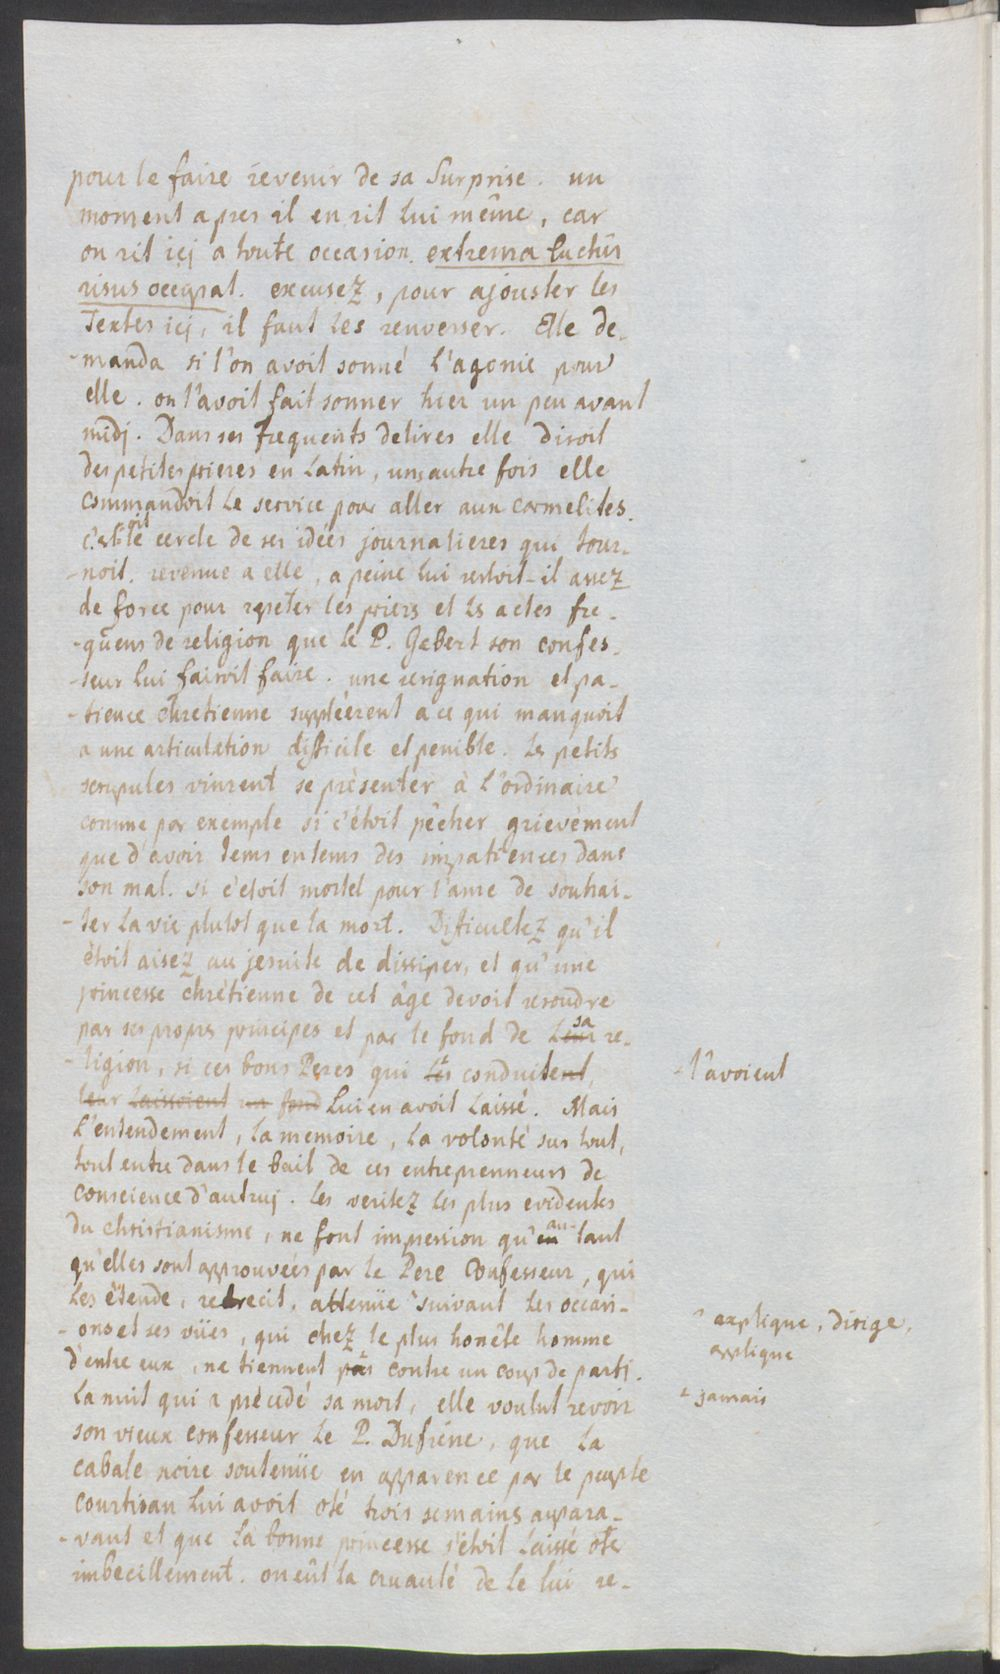 pour le faire revenir de sa Surprise. un
moment apres il en rit lui même, car
on rit icj a toute occasion. extrema luctûs
risus occupat. excusez, pour ajouster les
Textes icj, il faut les renverser. Elle de-
-manda si l'on avoit sonné l'agonie pour
elle. on l'avoit fait sonner hier un peu avant
midj. Dans ses frequents delires elle disoit
des petites prieres en Latin, une autre fois elle
commandoit le service pour aller aux carmelites.
c'estoit le cercle de ses idées journalieres qui tour-
-noit. revenue a elle, a peine lui restoit-il assez
de force pour repeter les priers et les actes fre-
-quens de religion que le P. Gebert son confes-
-seur lui faisoit faire. une resignation et pa-
-tience chretienne suppléerent a ce qui manquoit
a une articulation difficile et penible. Les petits
scrupules vinrent se présenter à l'ordinaire
comme par exemple si c'étoit pêcher grievément
que d'avoir tems en tems des impatiences dans
son mal. si c'etoit mortel pour l'ame de souhai-
-ter la vie plutot que la mort. Difficultez qu'il
étoit aisez au jesuite de dissiper, et qu'une
princesse chrétienne de cet âge devoit resoudre
par ses propres principes et par le fond de leur sa re-
-ligion, si ces bons Peres qui les conduisent, l'avoient
leur laissoient un fond lui en avoit laissé. Mais
l'entendement, la memoire, la volonté sur tout,
tout entre dans le bail de ces entreprenneurs de
conscience d'autruj. les veritez les plus evidentes
du christianisme, ne font impression qu'en au-tant
qu'elles sont approuvées par le Pere Confesseur, qui
les étende, retrecit, attenüe suivant les occasi- explique, dirige, applique
-ons et ses vües, qui chez le plus honête homme
d'entre eux, ne tiennent pas contre un coup de parti. jamais
La nuit qui a précedé sa mort, elle voulut revoir
son vieux confesseur le P. Dufréne, que la
cabale noire soutenüe en apparence par le peuple
courtisan lui avoit oté trois semains aupara-
-vant et que la bonne princesse s'étoit laissé oter
imbecillement. on eût la cruauté de le lui re-